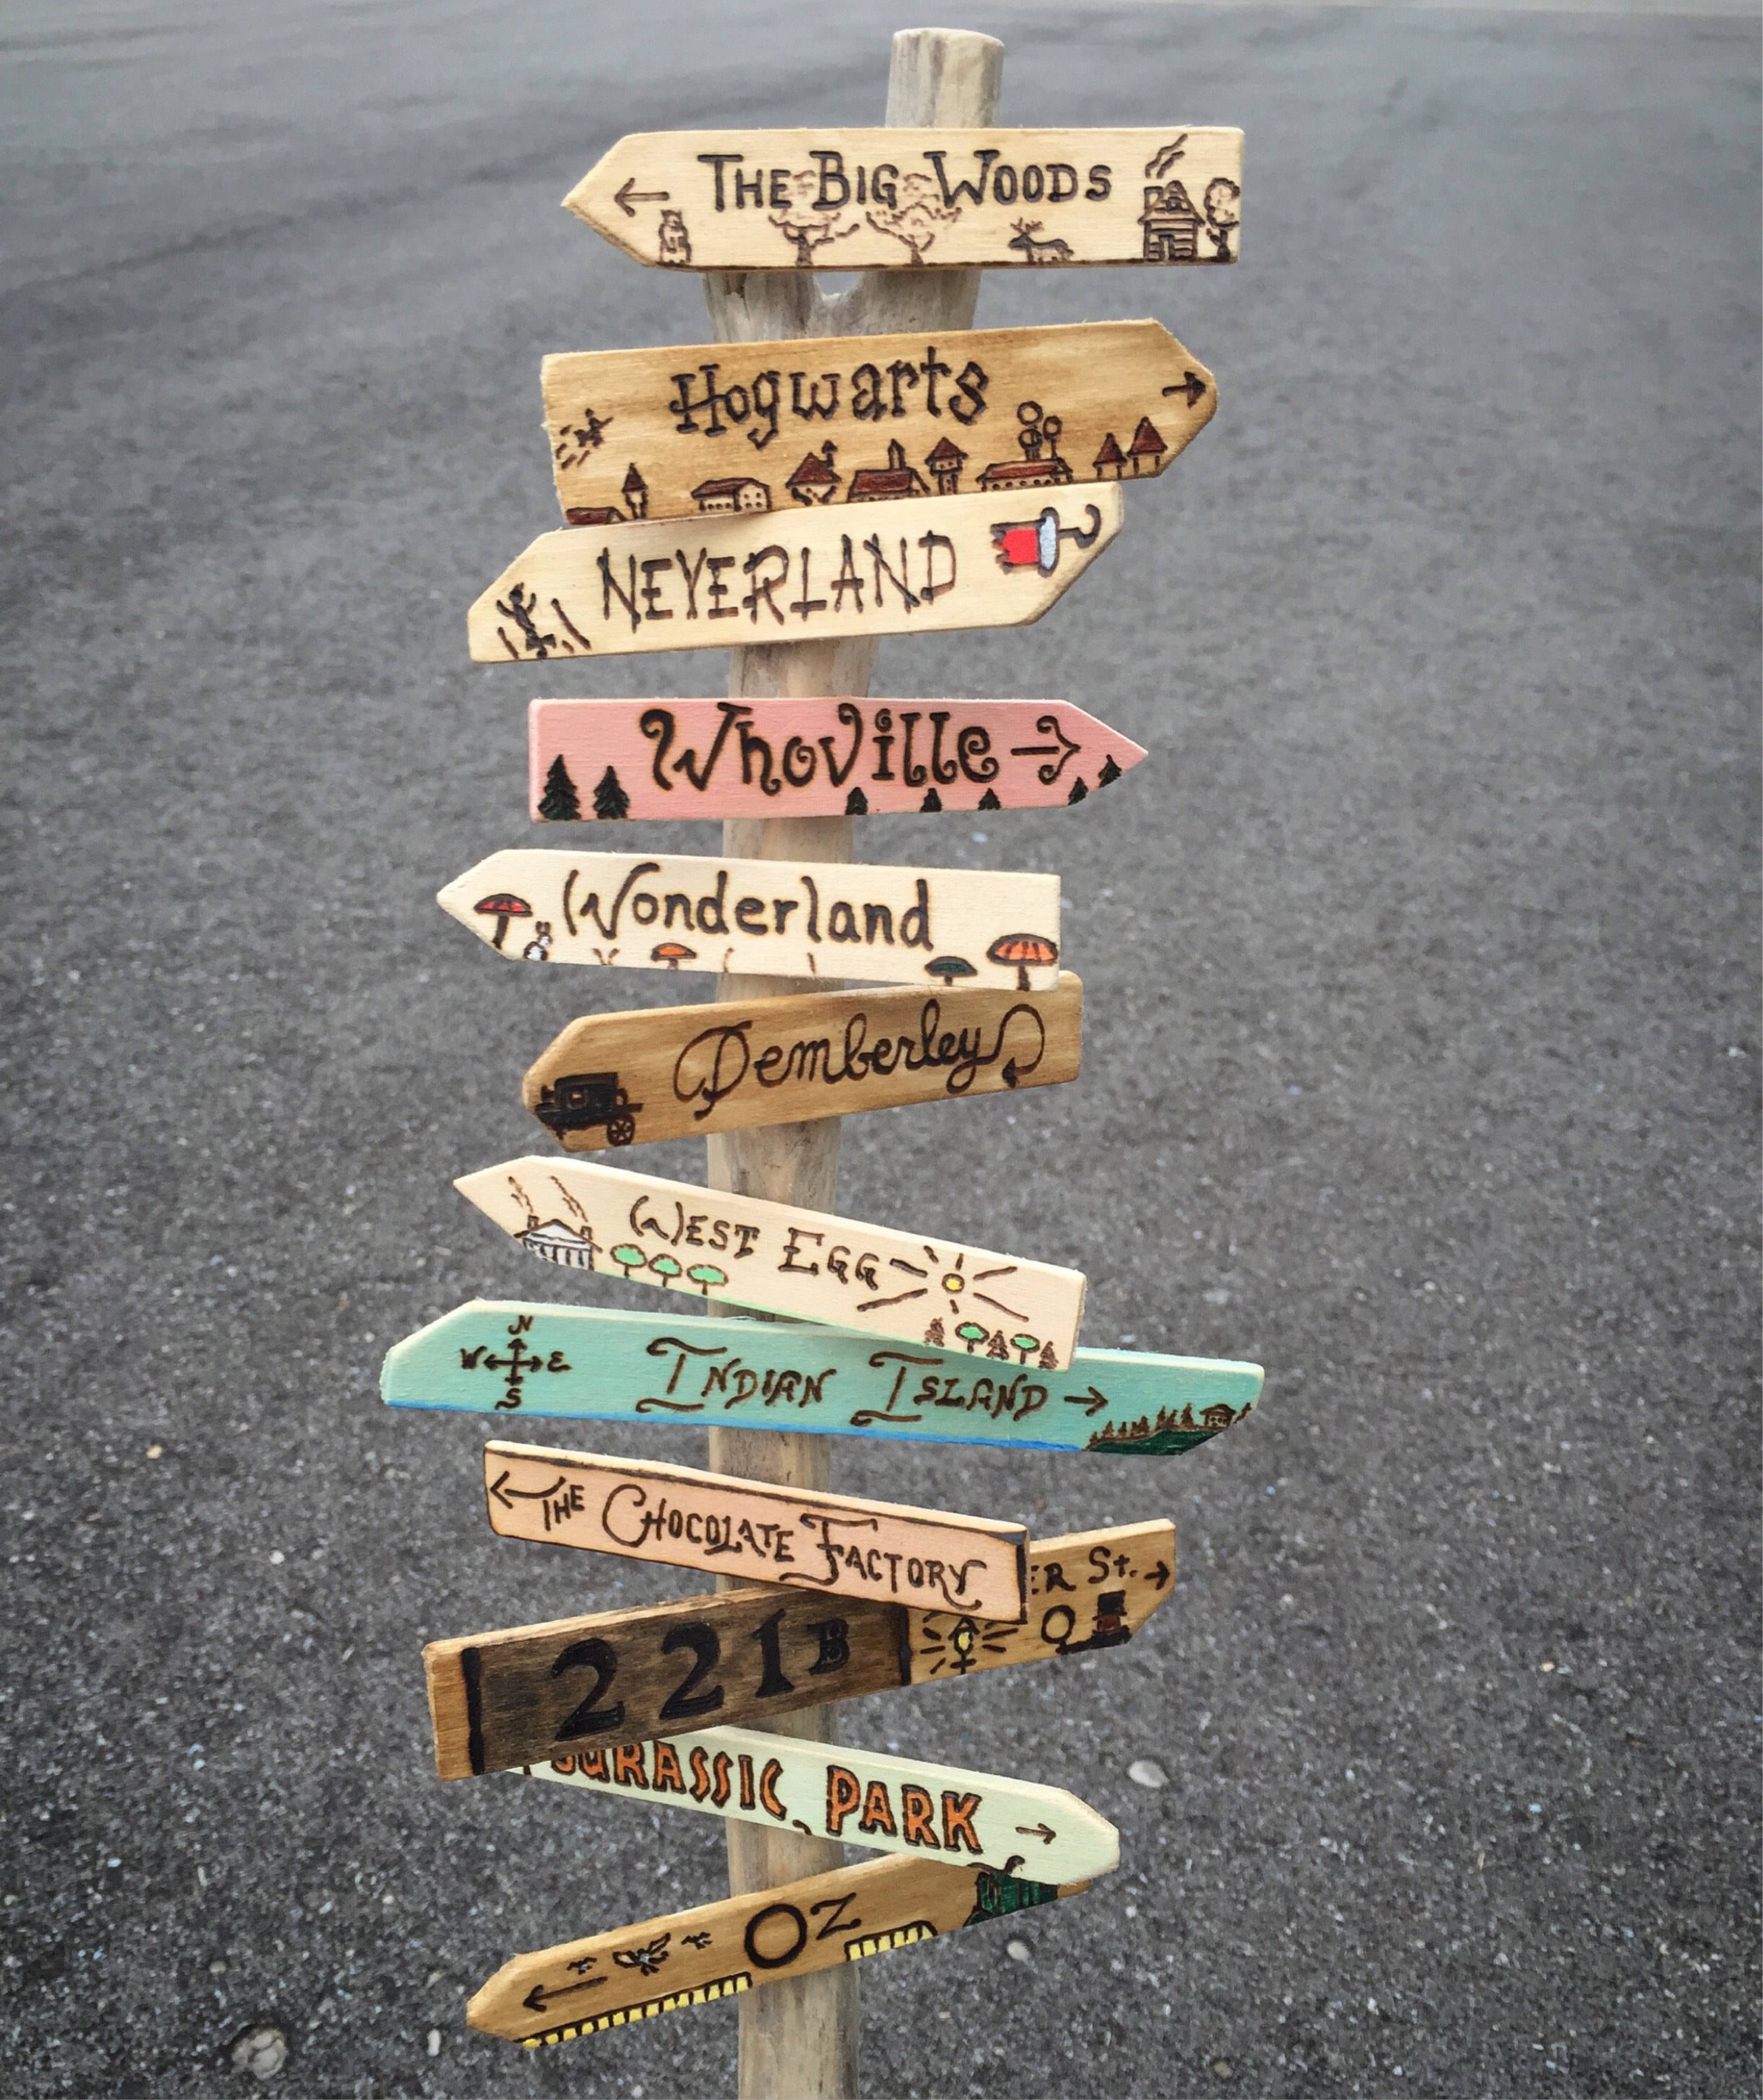 THE BIG WOODS
Hogwarts
NEVERLAND
WhoVille
Wonderland
Pemberley
WEST EGG
N
W E
S
INDIAN ISLAND
THE CHOCOLATE FACTORY
ER St.
221B
JURASSIC PARK
OZ